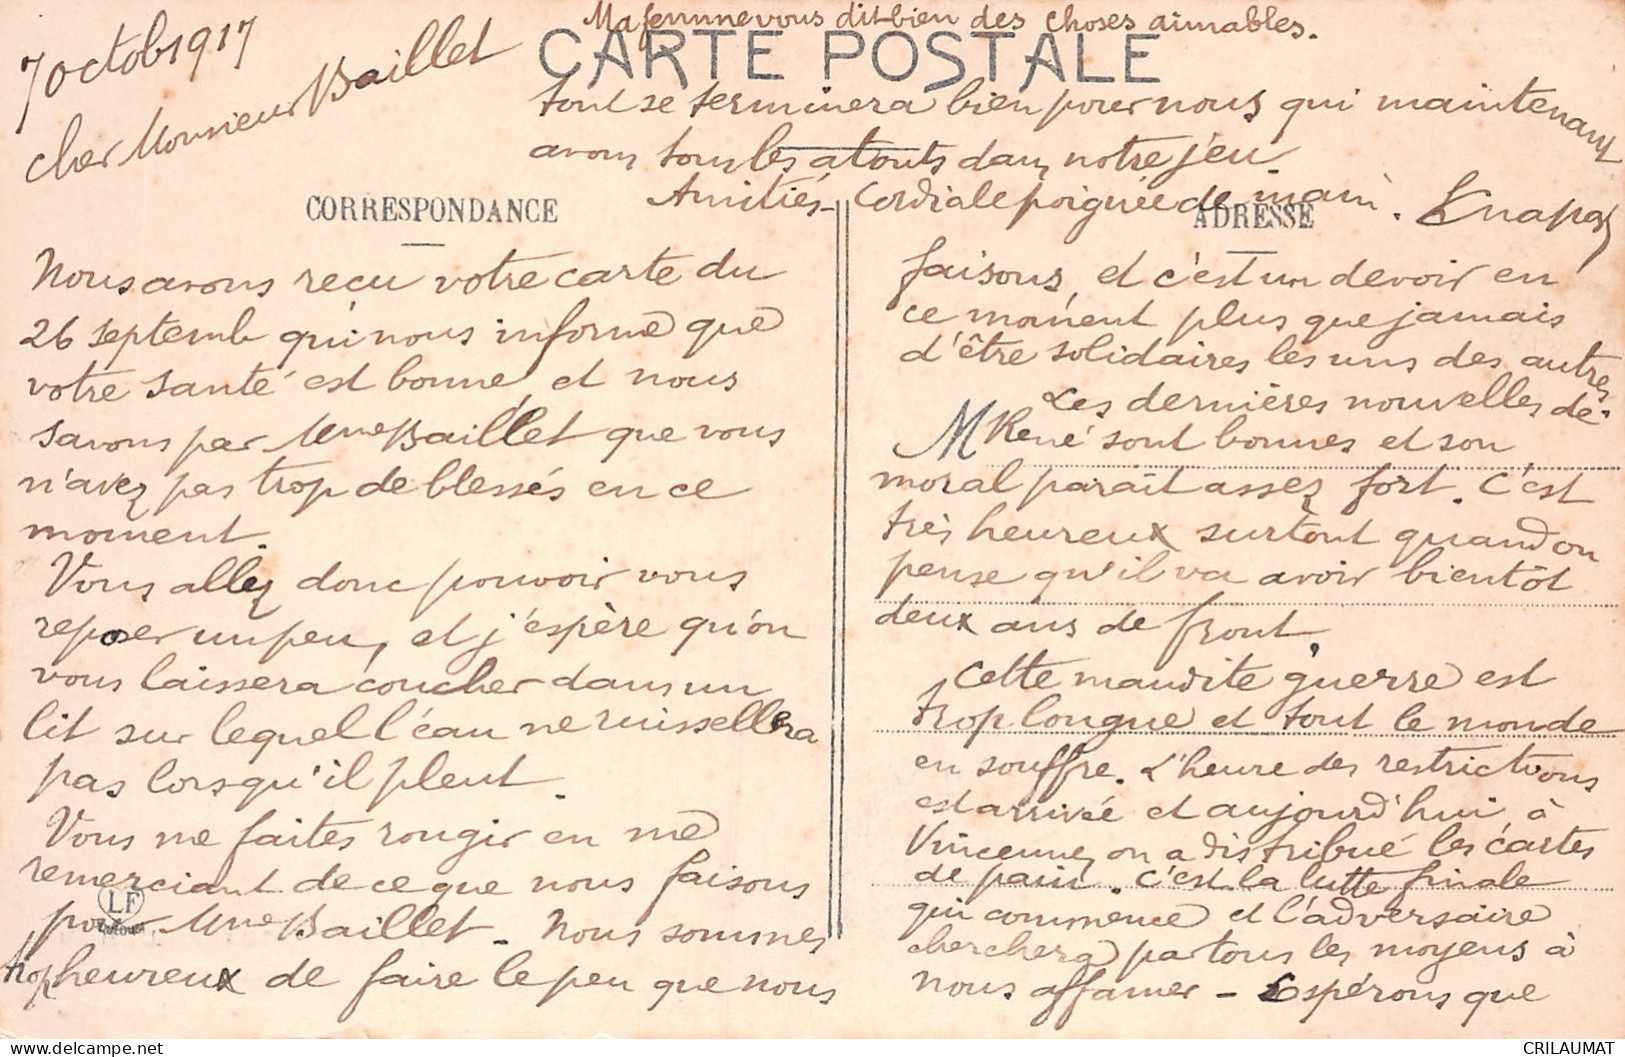 7 octob 1917
cher Monsieur Baillet
CARTE POSTALE
CORRESPONDANCE
Nous avons reçu votre carte du
26 septemb qui nous informe que
votre santé est bonne, et nous
savons par Mme Baillet que vous
n'avez pas trop de blessés en ce
moment.
Vous allez donc pouvoir vous
reposer un peu, et j'espère qu'on
vous laissera coucher dans un
lit sur lequel l'éau ne ruissellera
pas lorsqu'il pleut.
Vous me faites rougir en me
remerciant de ce que nous faisons
pour Mme Baillet. Nous sommes
trop heureux de faire le peu que nous
LF
ADRESSE
faisons, et c'est un devoir en
ce moment plus que jamais
d'être solidaires les uns des autres
Les dernières nouvelles de
M René sont bonnes et son
moral parait assez fort. C'est
très heureux surtout quand on
pense qu'il va avoir bientôt
deux ans de front.
Cette maudite guerre est
trop longue et tout le monde
en souffre. L'heure des restrictions
est arrivée et aujourd'hui, à
Vincennes on a distribué les cartes
de pain. C'est la lutte finale
qui commence et l'adversaire
cherchera partous les moyens à
nous affamer - Espérons que
tout se terminera bien pour nous qui maintenant
avons tous les atouts dans notre jeu.
Amitiés - Cordiale poignée de main.
Ma femme vous dit bien des choses aimables.
CRILAUMAT